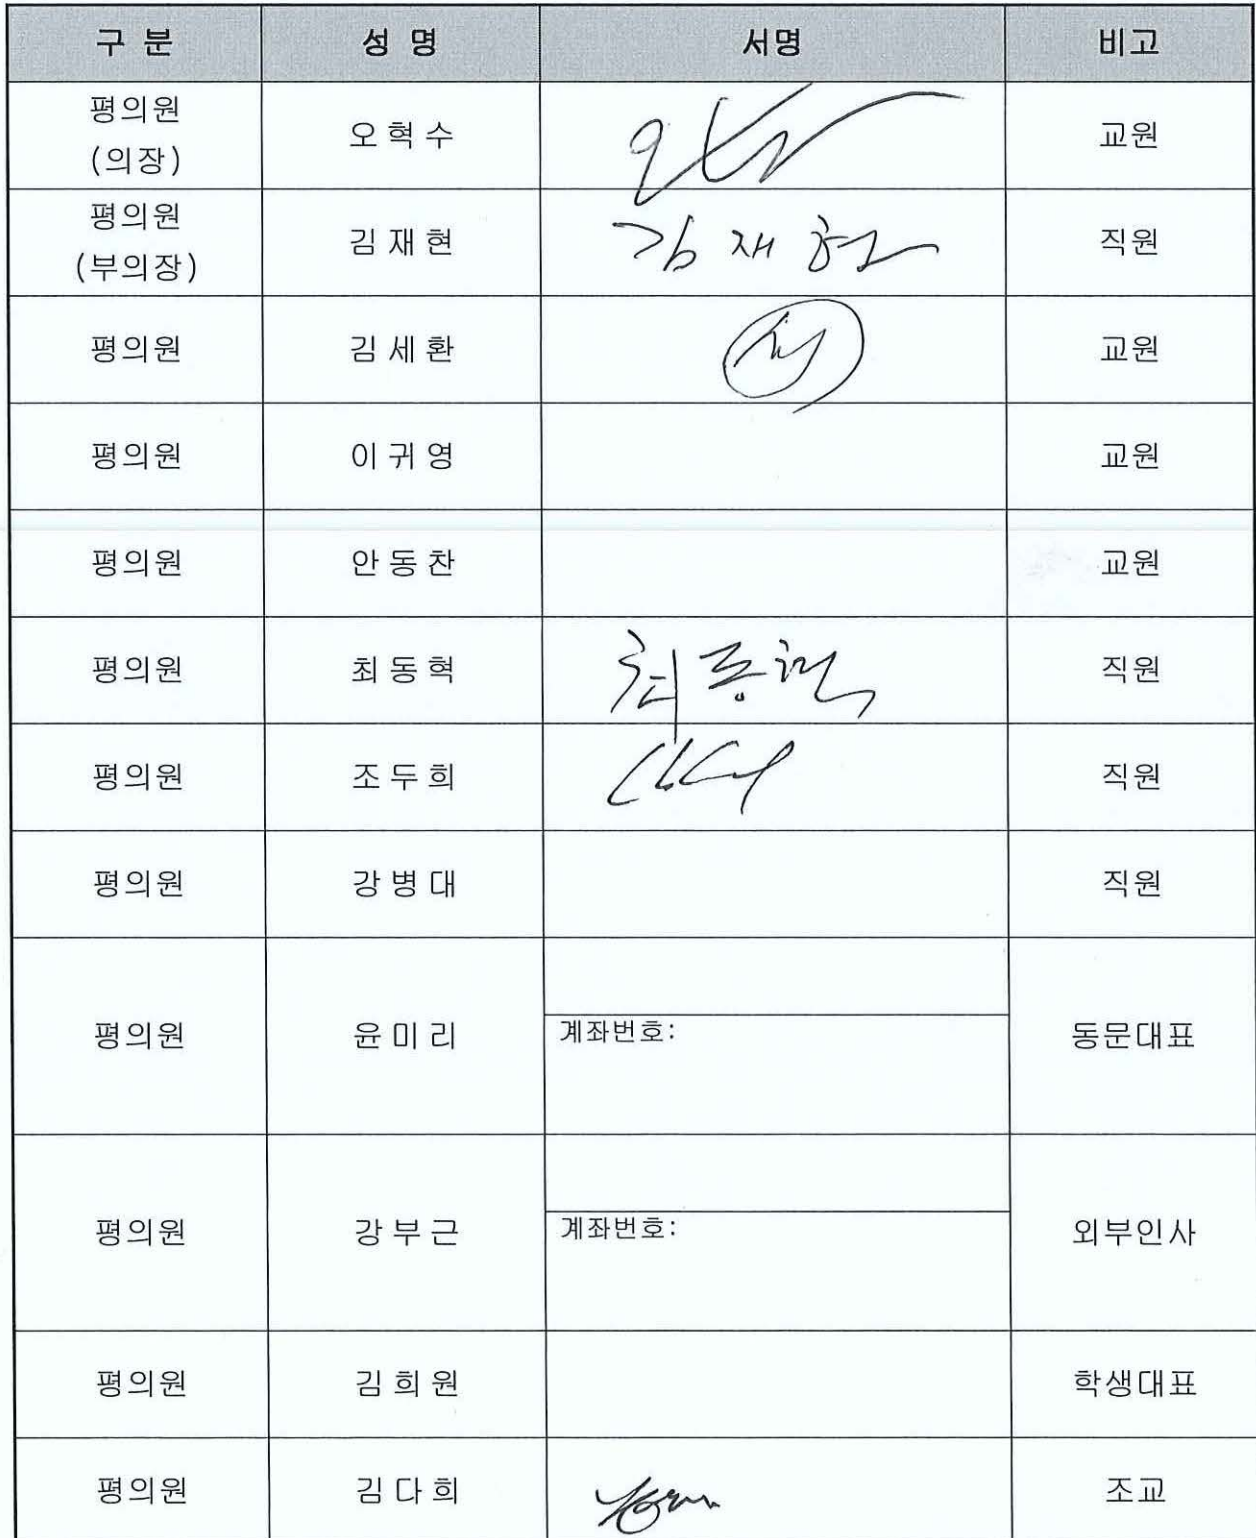 구 분 성 명 서명 비고
평의원
(의장) 오 혁 수 교원
평의원
(부의장) 김 재 현 김 재 현 직원
평의원 김 세 환 교원
평의원 이 귀 영 교원
평의원 안 동 찬 교원
평의원 최 동 혁 최동혁 직원
평의원 조 두 희 직원
평의원 강 병 대 직원
평의원 윤 미 리 계좌번호: 동문대표
평의원 강 부 근 계좌번호: 외부인사
평의원 김 희 원 학생대표
평의원 김 다 희 조교